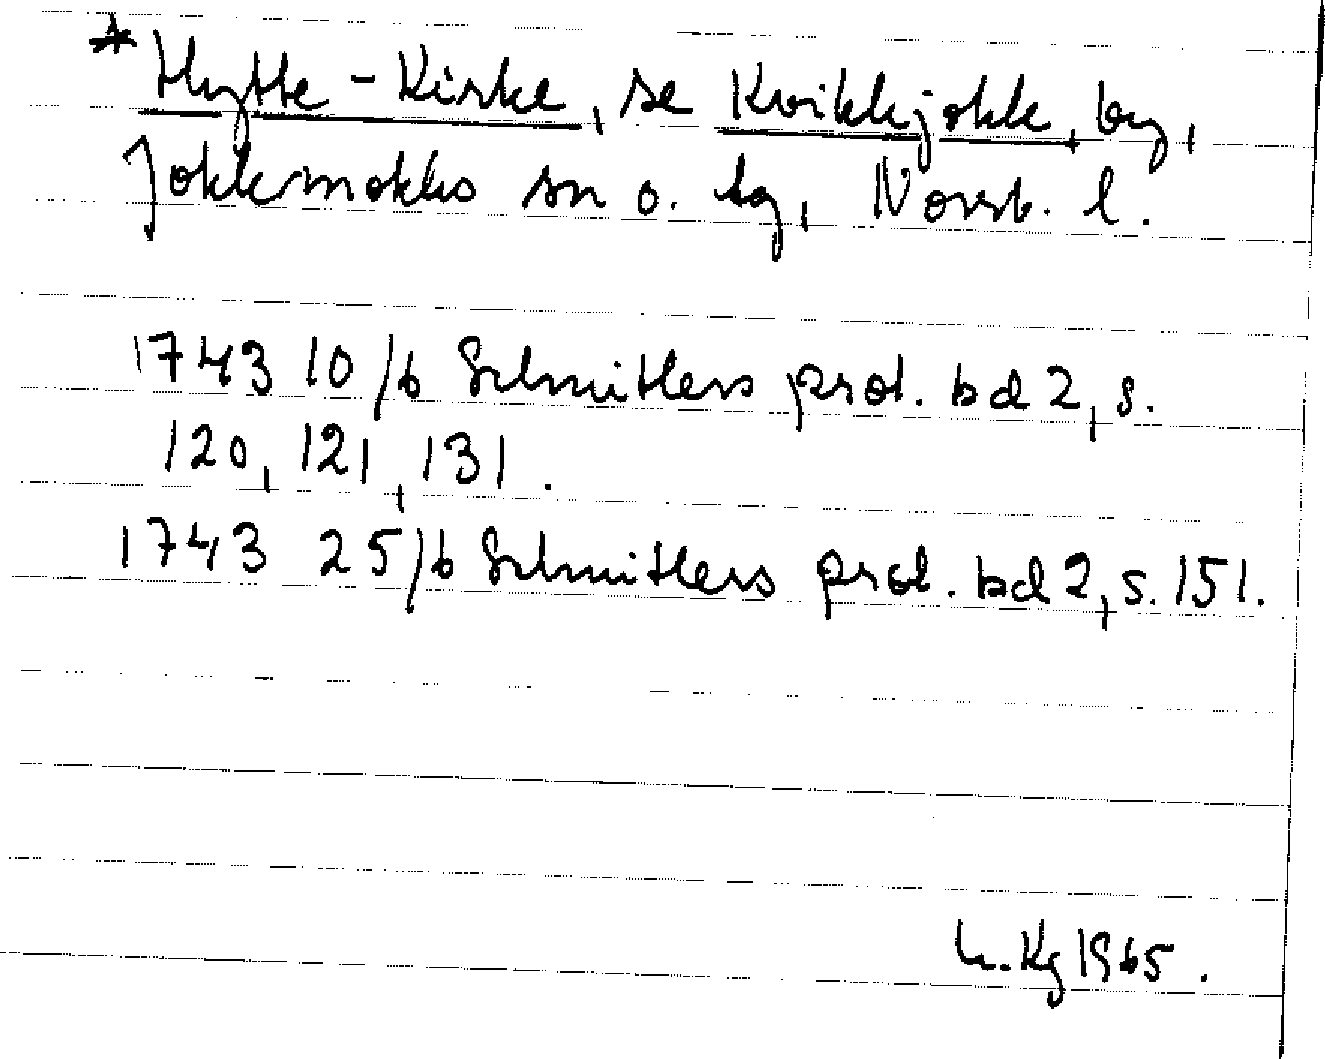 * Hytte-Kirke, se Kvikkjokk, by,
Jokkmokks sn o. tg, Norrb. l.
1743 10/6 Schnitlers prot. bd 2, s.
120, 121, 131.
1743 25/6 Schnitlers prot. bd 2, s. 151.
Kg 1965.